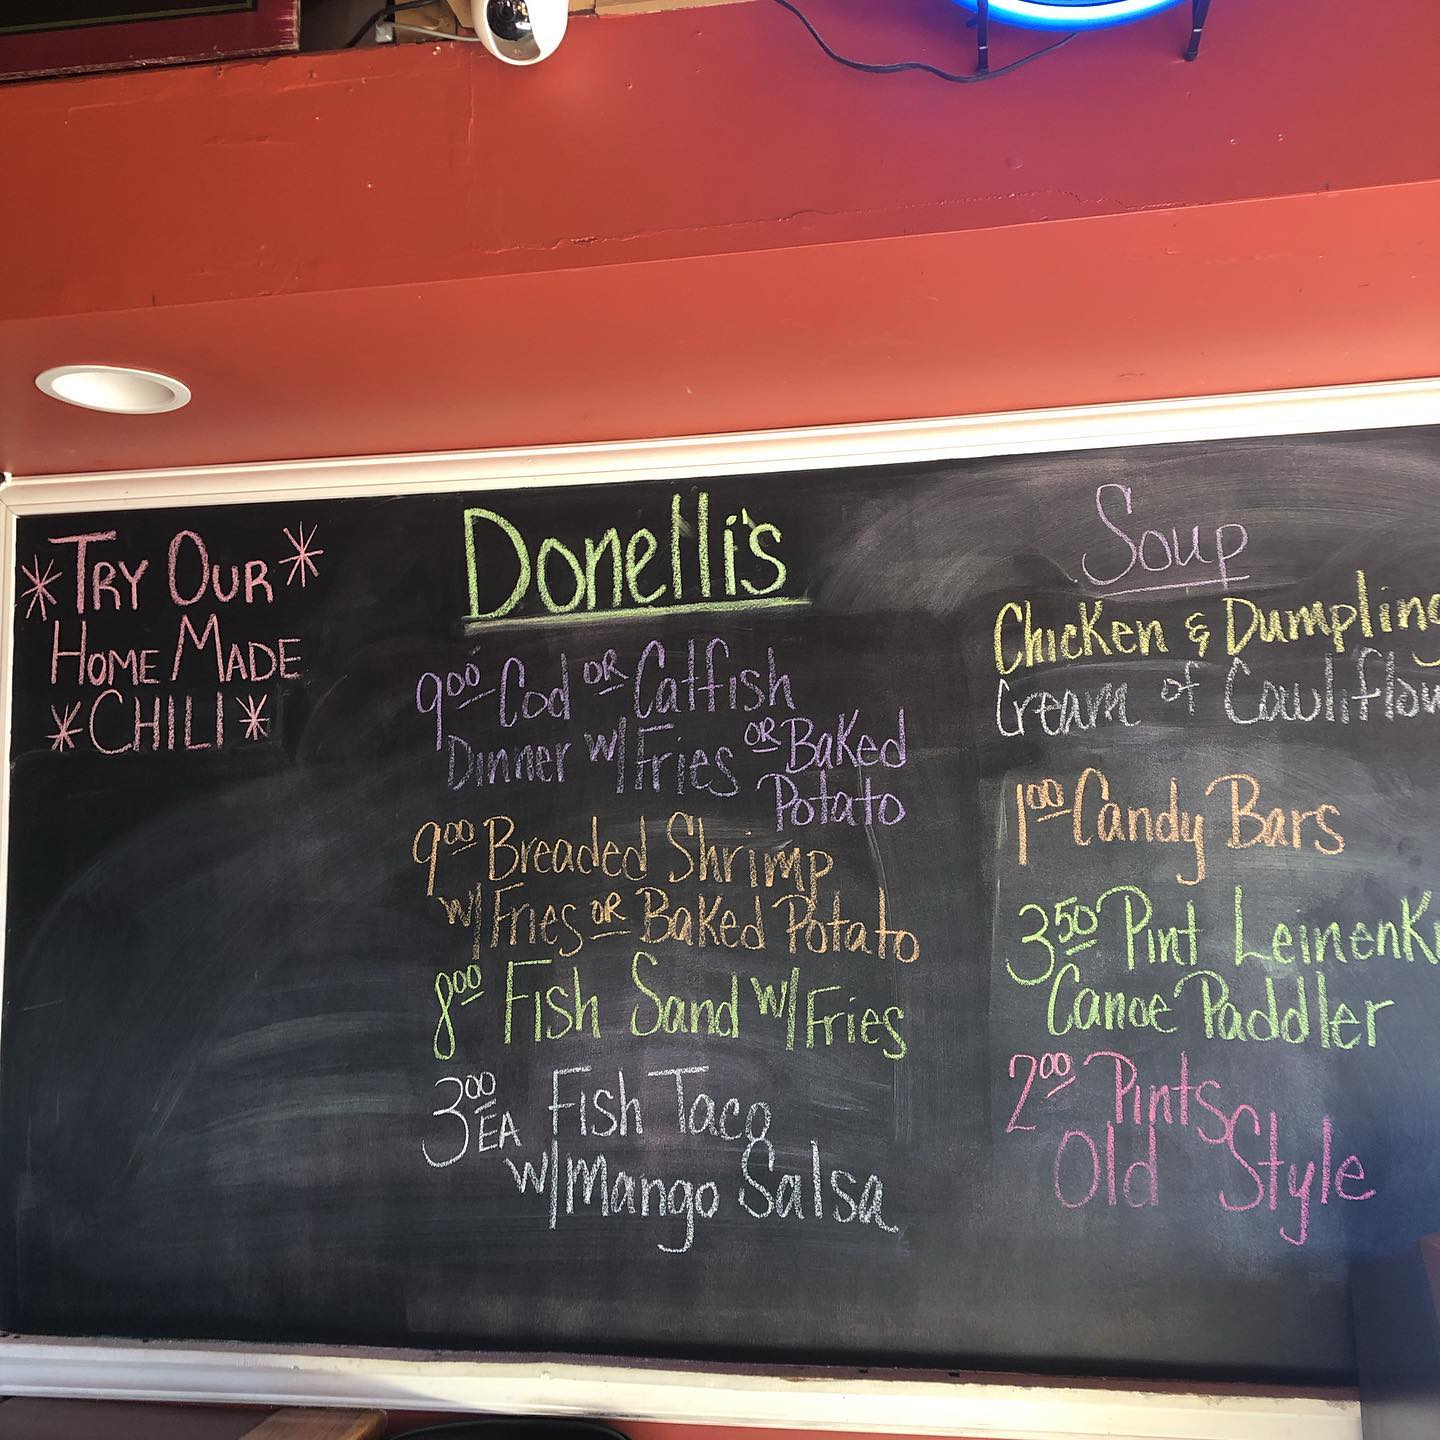 *TRY OUR*
HOME MADE
*CHILI*
Donelli's
9.00 Cod OR Catfish
Dinner w/Fries OR Baked
Potato
9.00 Breaded Shrimp
w/Fries OR Baked Potato
8.00 Fish Sand w/Fries
3.00 EA Fish Taco
w/Mango Salsa
Soup
Chicken & Dumpling
Cream of Cauliflow
1.00 Candy Bars
3.50 Pint Leinenk
Canoe Paddler
2.00 Pints
Old Style